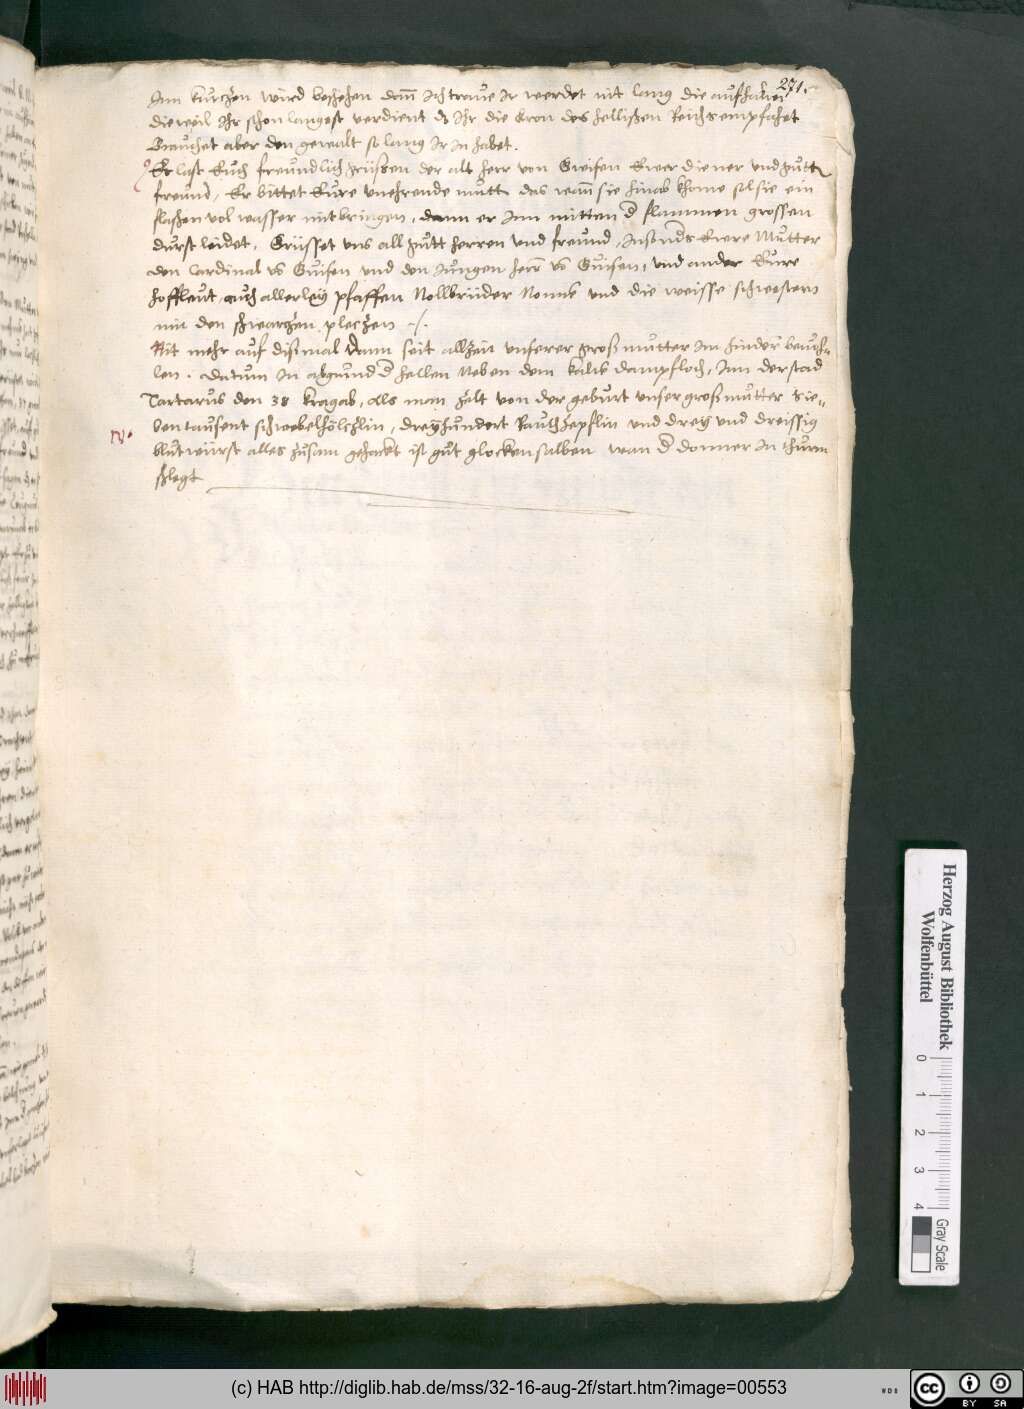 271.
Inn kurczen wird beschehen dann ich traue ir werdet nit lang die aufschaben
dieweil Ihr schon langest verdient dz Ihr die kron des hellischen Reichs empfahet
Brauchet aber den gewalt so lang Ir In habet.
Es last Euch freundlich grüssen der alt herr von Gwisen Ewer diener und gutt
freund, Er bittet Eure vnehrende mutt das wann sie hinab khome sol sie ein
flaschen vol wasser mitbringen, dann er Inn mitten d flammen grossen
durst leidet, Grüsset vns all gutt herren vnd freund, Insonds Ewere Mutter
den Cardinal vo Guisen und den Jungen herr vo Guisen, vnd ander Eure
hoffleut, auch allerley pfaffen Nollbrüder Nonne vnd die weisse schwestern
mit den schwarczen pleczen ./.
Nit mehr auf dismal dann seit allzeit vnserer grosmutter im hindern beuoh-
len. Datum In abgrund d hellen Neben dem kalck dampfloch, Inn der stad
Tartarus den 38 kragab, als man zelt von der geburt vnser grosmutter Sie-
ben tausent schwebelhölczlin, dreyhundert Rauchzepflin und drey und dreissig
blutwürst alles zusam gehackt ist gut glockensalben wan d donner In thurm
schlegt
Herzog August Bibliothek
Wolfenbüttel
0 1 2 3 4
Gray Scale
(c) HAB http://diglib.hab.de/mss/32-16-aug-2f/start.htm?image=00553
WDB
CC BY SA